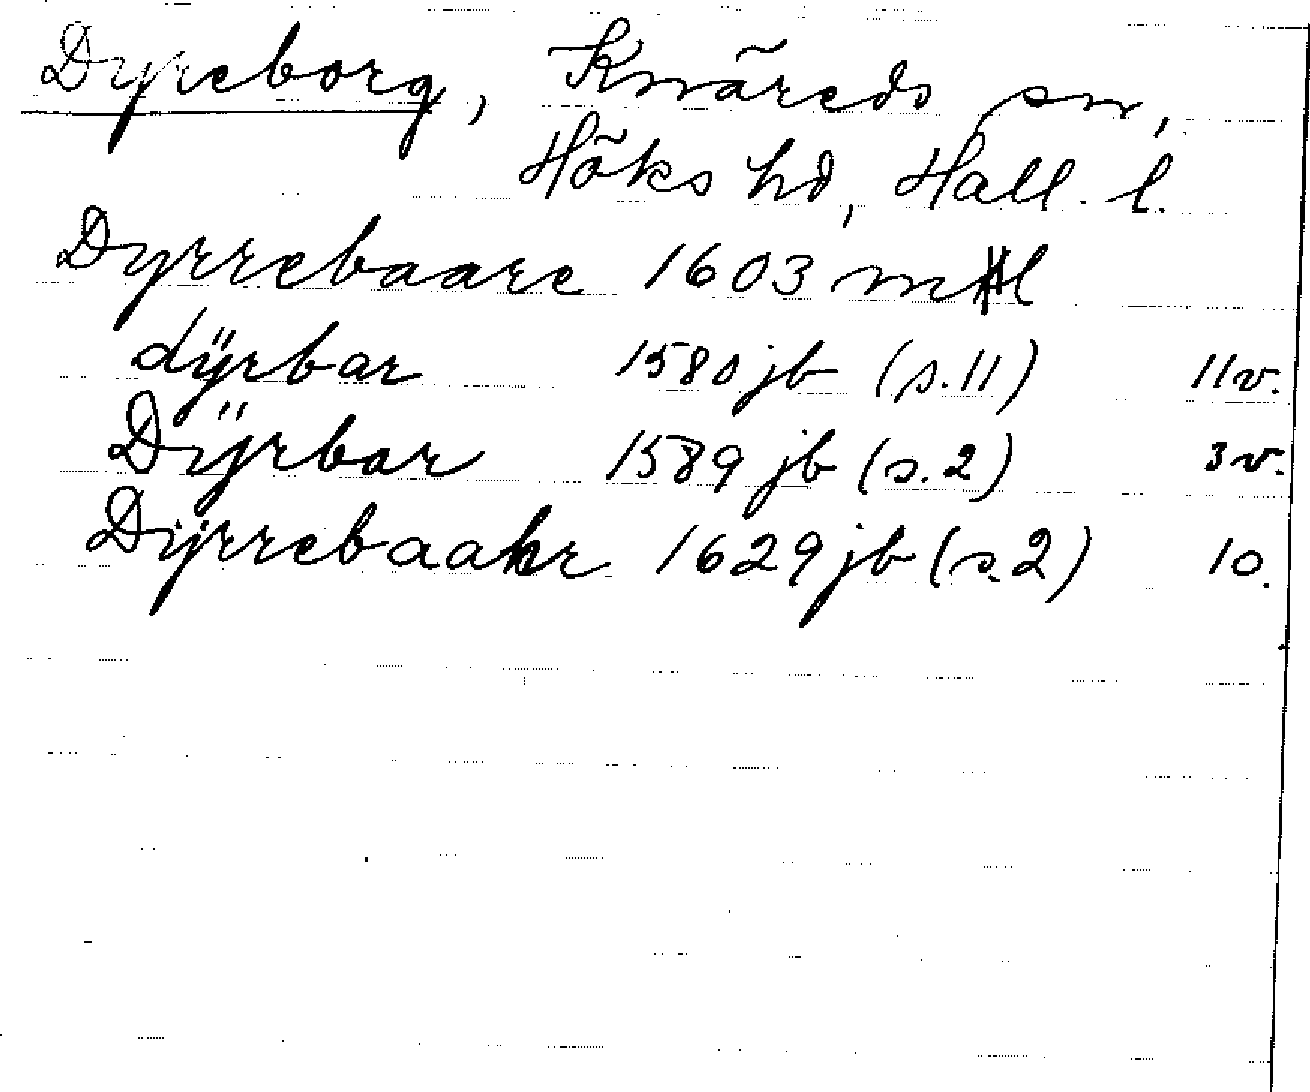 Dyreborg, Knäreds sn,
Höks hd, Hall. l.
Dyrrebaare 1603 mtl
dÿrbar 1580 jb (s.11) 11v.
Dÿrbar 1589 jb (s.2) 3v.
Dÿrrebaahr 1629 jb (s.2) 10.